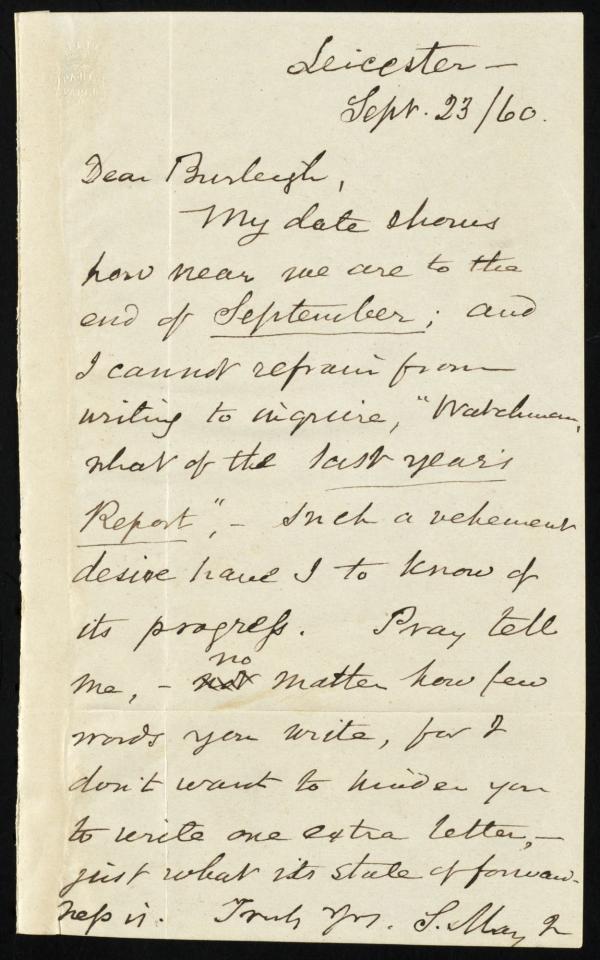 Leicester –
Sept. 23/60.
Dear Burleigh,
My date shows
how near we are to the
end of September; and
I cannot refrain from
writing to inquire, "Watchman,
what of the last year's
Report", – Such a vehement
desire have I to know of
its progress. Pray tell
no
me, – not matter how few
words you write, for I
don't want to hinder you
to write one extra letter, –
just what its state of forward-
ness is. Truly Yrs. S. May, Jr